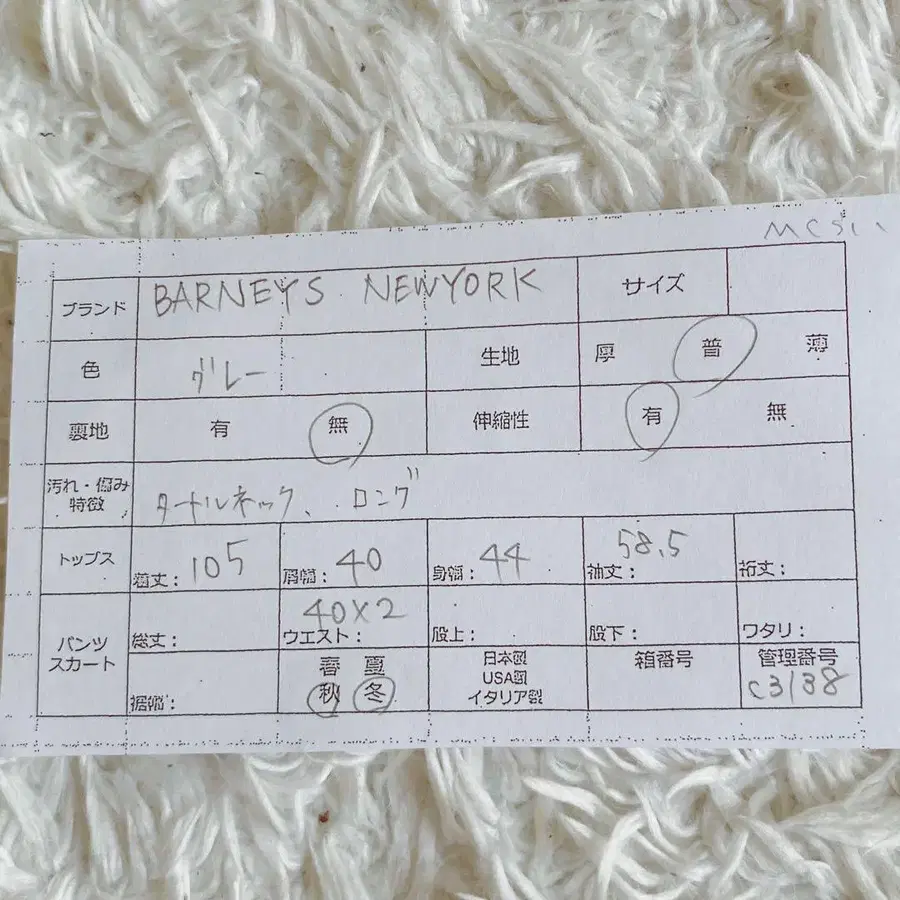 MCS
ブランド BARNEYS NEWYORK サイズ
色 グレー 生地 厚 普 薄
裏地 有 無 伸縮性 有 無
汚れ・傷み
特徴 タートルネック、ロング
トップス 着丈: 105 肩幅: 40 身幅: 44 袖丈: 58.5 裄丈:
パンツ
スカート 総丈: ウエスト: 40×2 股上: 股下: ワタリ:
裾幅: 春 夏 秋 冬 日本製 USA製 イタリア製 箱番号 管理番号 c3138